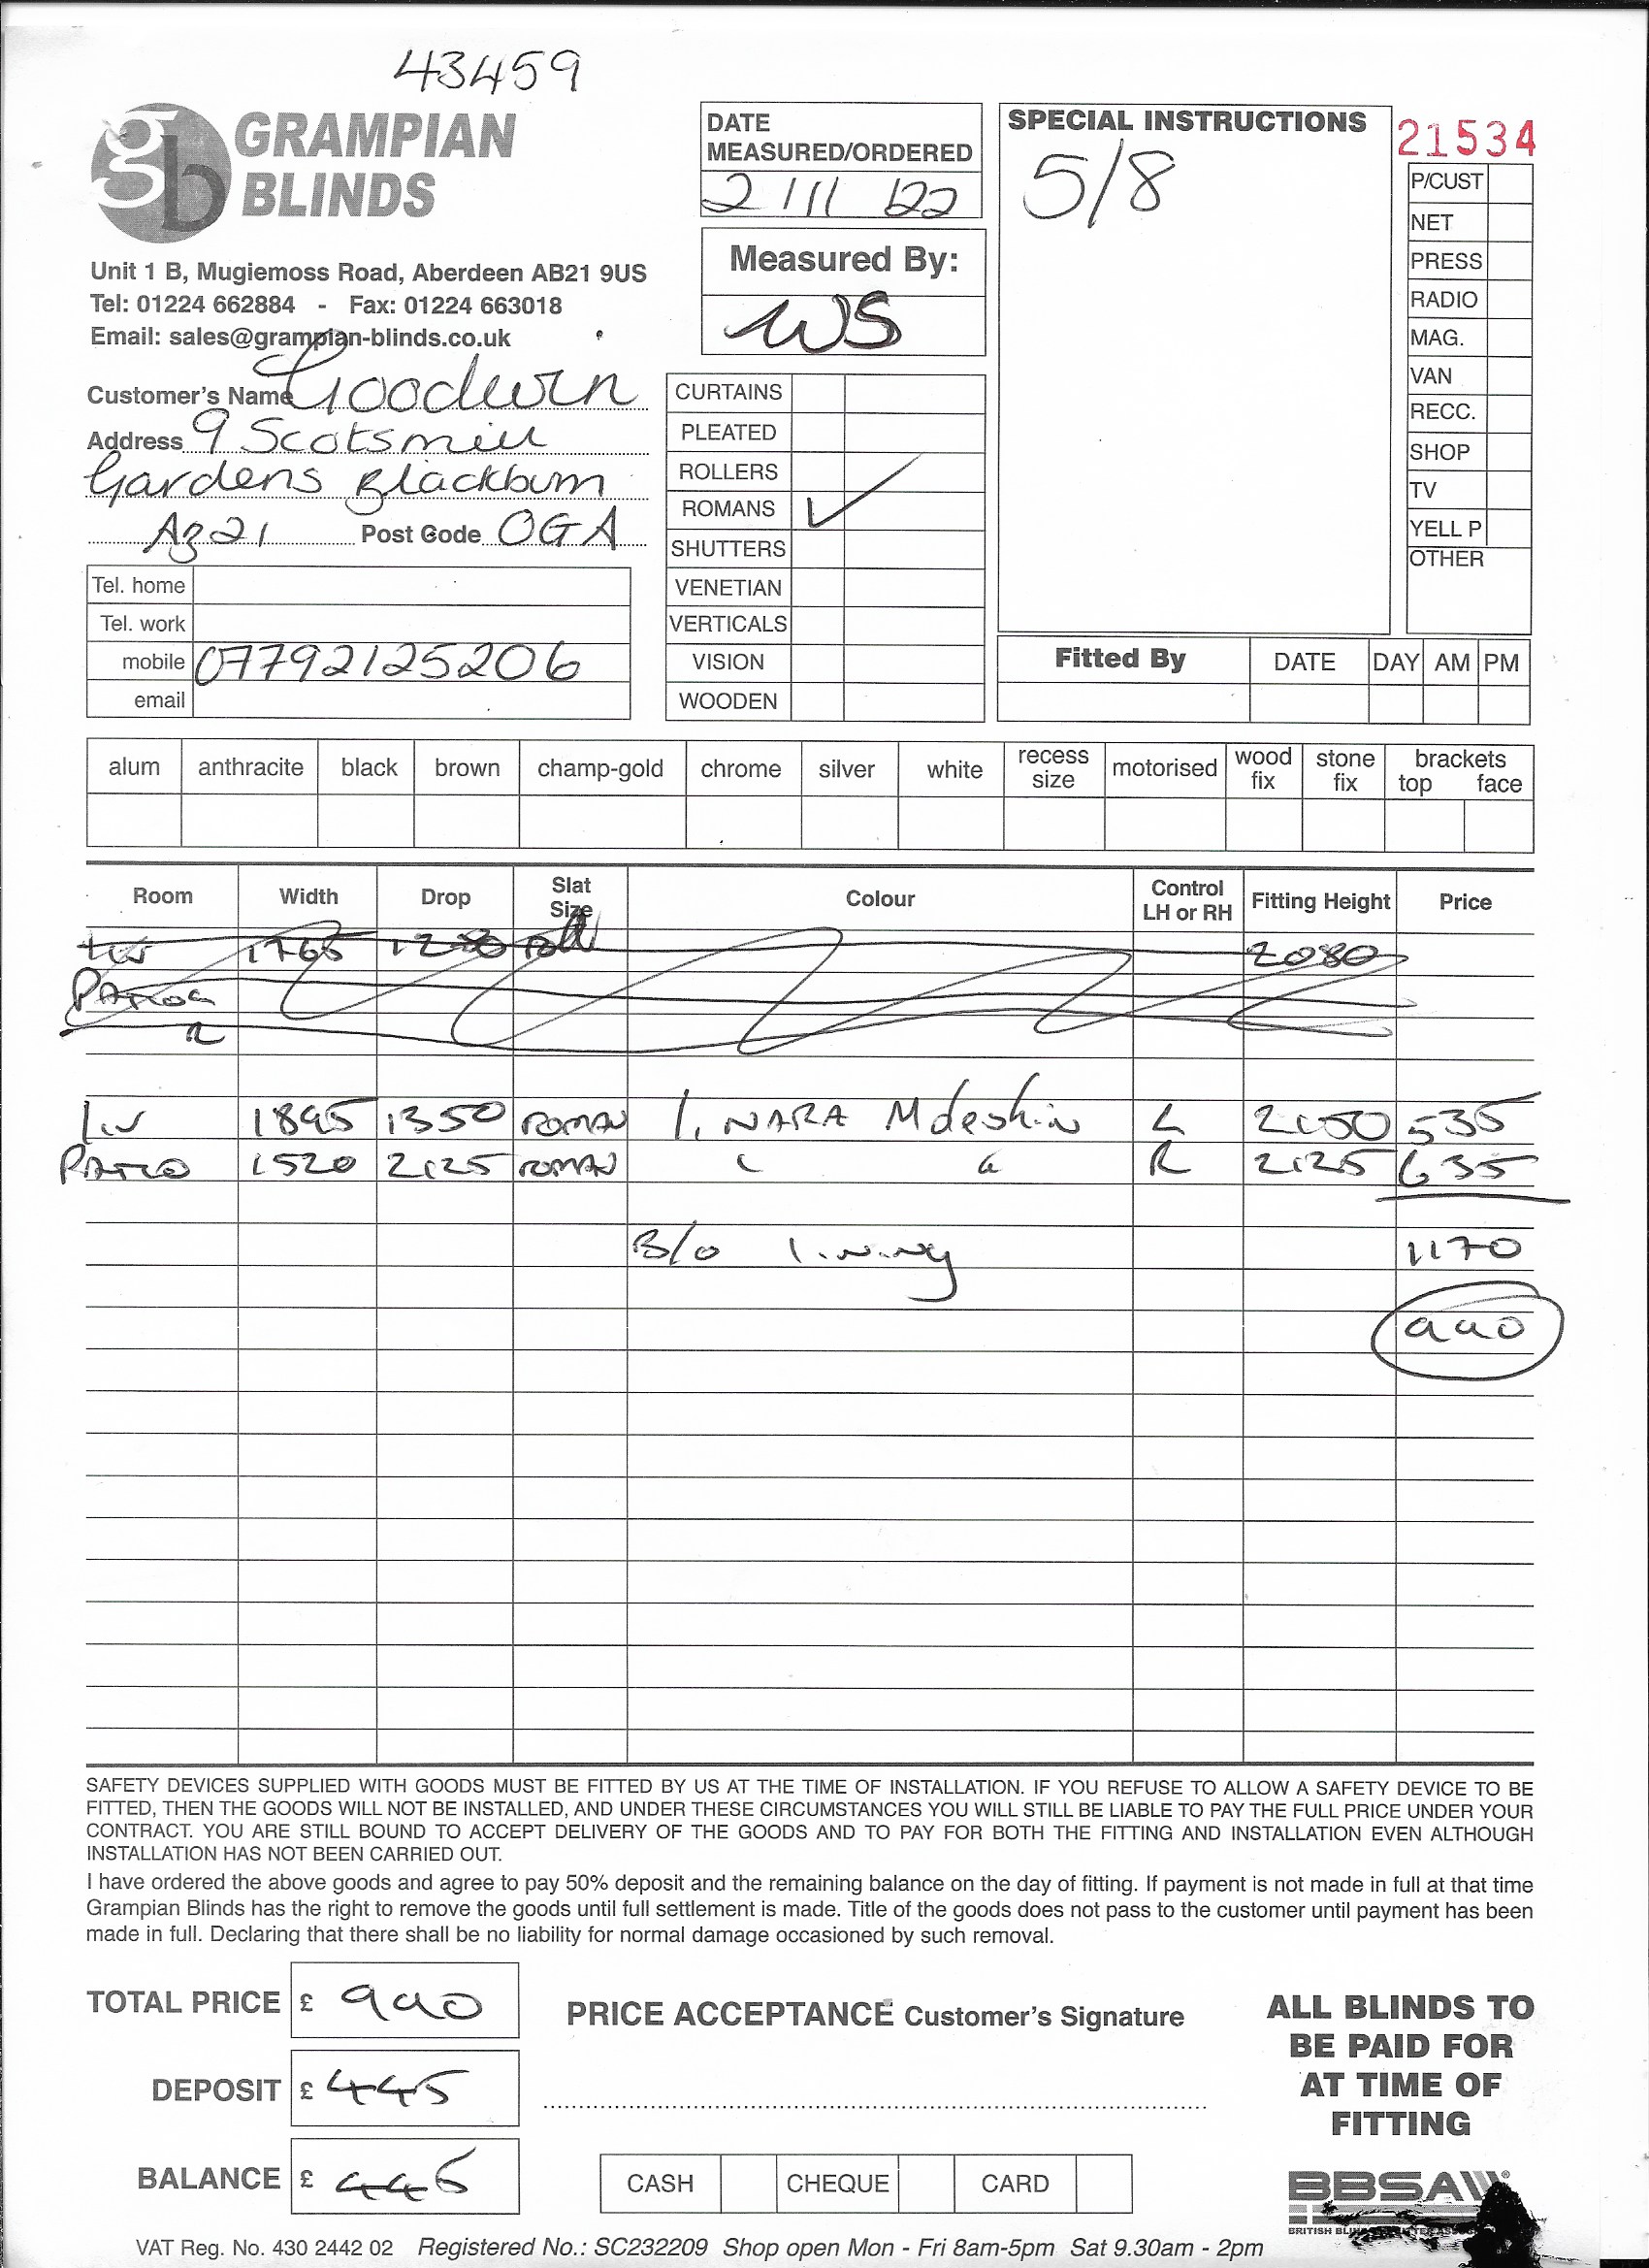 43459
GRAMPIAN
BLINDS
Unit 1 B, Mugiemoss Road, Aberdeen AB21 9US
Tel: 01224 662884 - Fax: 01224 663018
Email: sales@grampian-blinds.co.uk
Customer's Name Goodwin
Address 9 Scotsmill
Gardens Blackburn
AB21 Post Code 0GA
Tel. home
Tel. work
mobile 07792125206
email
DATE
MEASURED/ORDERED
2/11/22
Measured By:
WS
CURTAINS
PLEATED
ROLLERS
ROMANS ✓
SHUTTERS
VENETIAN
VERTICALS
VISION
WOODEN
SPECIAL INSTRUCTIONS
5/8
21534
P/CUST
NET
PRESS
RADIO
MAG.
VAN
RECC.
SHOP
TV
YELL P
OTHER
Fitted By DATE DAY AM PM
alum anthracite black brown champ-gold chrome silver white recess size motorised wood fix stone fix brackets top face
Room Width Drop Slat Size Colour Control LH or RH Fitting Height Price
1765 2080
Liv 1895 1350 ROMAN 1. NARA L 535
PATIO 1520 2125 ROMAN " " R 2125 635
B/o lining 1170
TOTAL PRICE £
DEPOSIT £ 445
BALANCE £ 445
SAFETY DEVICES SUPPLIED WITH GOODS MUST BE FITTED BY US AT THE TIME OF INSTALLATION. IF YOU REFUSE TO ALLOW A SAFETY DEVICE TO BE
FITTED, THEN THE GOODS WILL NOT BE INSTALLED, AND UNDER THESE CIRCUMSTANCES YOU WILL STILL BE LIABLE TO PAY THE FULL PRICE UNDER YOUR
CONTRACT. YOU ARE STILL BOUND TO ACCEPT DELIVERY OF THE GOODS AND TO PAY FOR BOTH THE FITTING AND INSTALLATION EVEN ALTHOUGH
INSTALLATION HAS NOT BEEN CARRIED OUT.
I have ordered the above goods and agree to pay 50% deposit and the remaining balance on the day of fitting. If payment is not made in full at that time
Grampian Blinds has the right to remove the goods until full settlement is made. Title of the goods does not pass to the customer until payment has been
made in full. Declaring that there shall be no liability for normal damage occasioned by such removal.
PRICE ACCEPTANCE Customer's Signature
CASH CHEQUE CARD
ALL BLINDS TO
BE PAID FOR
AT TIME OF
FITTING
BBSA
VAT Reg. No. 430 2442 02 Registered No.: SC232209 Shop open Mon - Fri 8am-5pm Sat 9.30am - 2pm